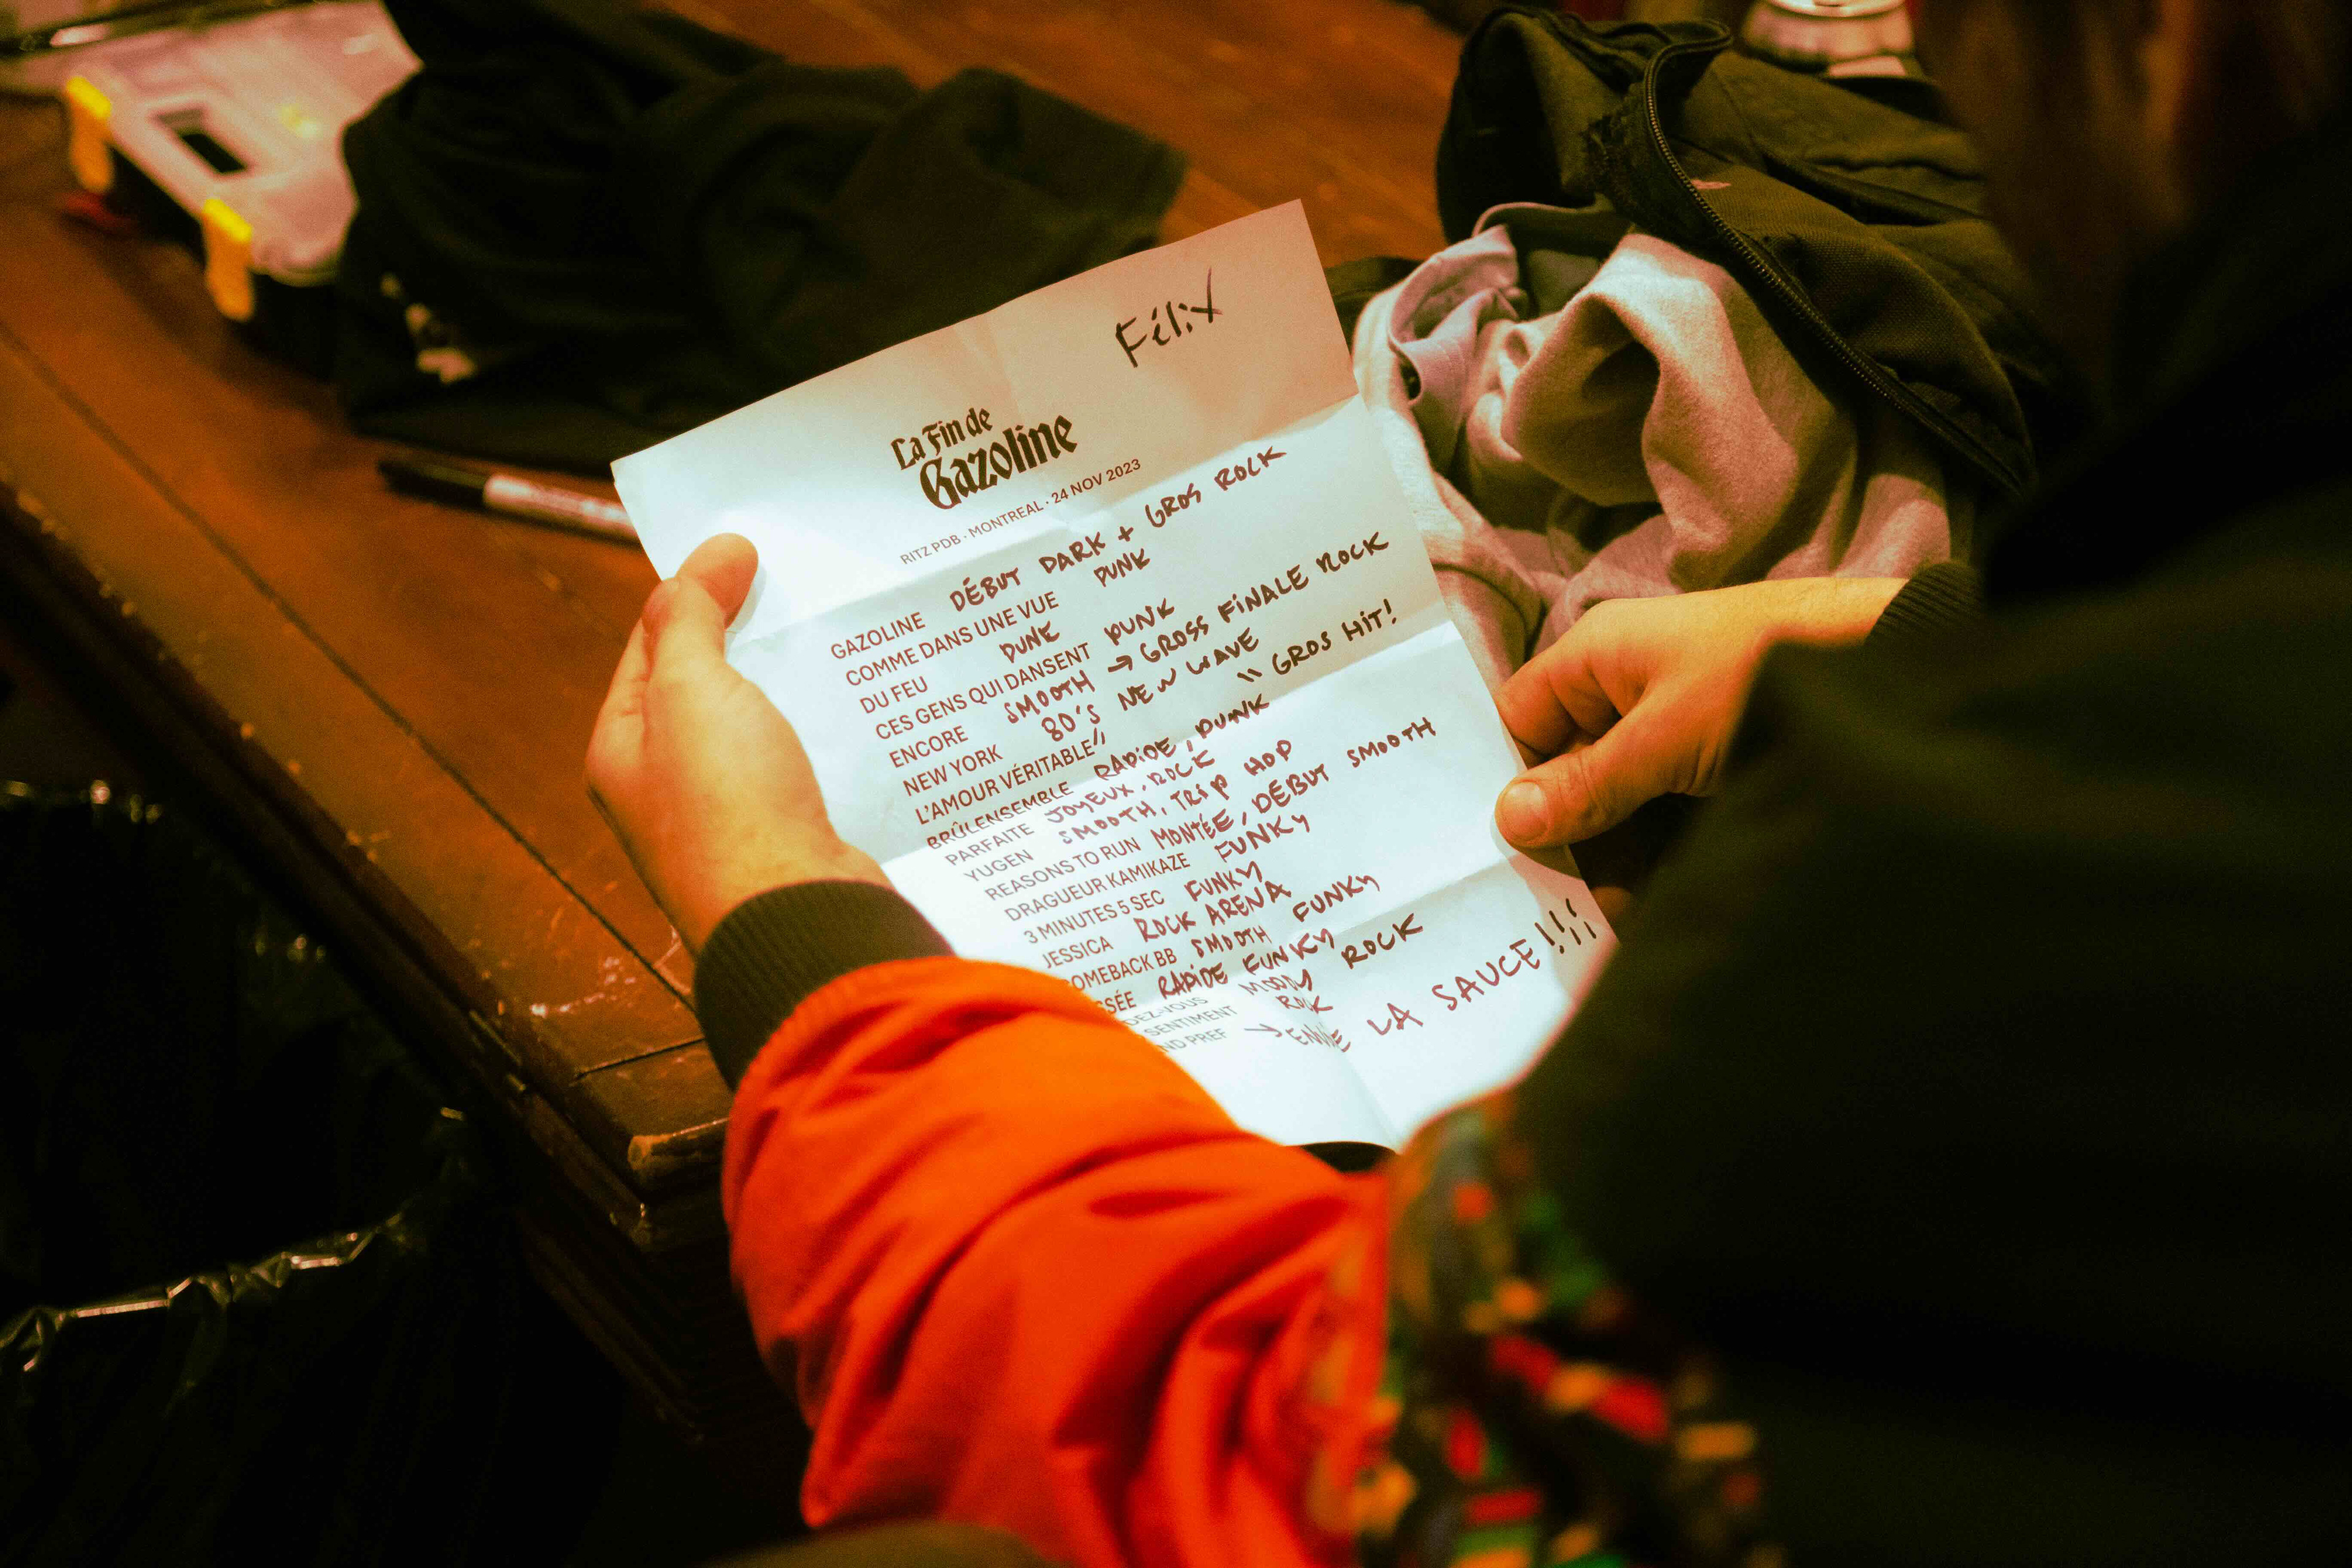 Félix
La Fin de
Gazoline
RITZ PDB · MONTREAL · 24 NOV 2023
GAZOLINE DÉBUT DARK + GROS ROCK
COMME DANS UNE VUE PUNK
DU FEU PUNK
CES GENS QUI DANSENT PUNK
ENCORE SMOOTH → GROSS FINALE ROCK
NEW YORK 80'S NEW WAVE
L'AMOUR VÉRITABLE " " GROS HIT!
BRÛLENSEMBLE RAPIDE, PUNK
PARFAITE JOYEUX, ROCK
YUGEN SMOOTH, TRIP HOP
REASONS TO RUN MONTÉE, DÉBUT SMOOTH
DRAGUEUR KAMIKAZE FUNKY
3 MINUTES 5 SEC FUNKY
JESSICA ROCK ARENA
OMEBACK BB SMOOTH FUNKY
SSÉE RAPIDE FUNKY
DEZ-VOUS MOODY ROCK
SENTIMENT ROCK
ND PREF → LA SAUCE!!!!